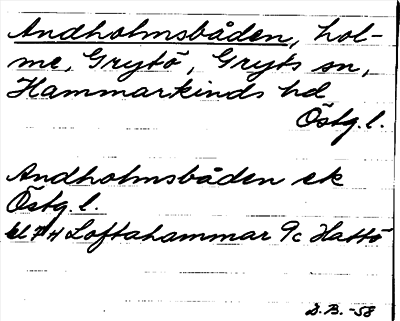 Andholmsbåden, hol-
me, Grytö, Gryts sn,
Hammarkinds hd
Östg. l.
Andholmsbåden ek
Östg. l.
Loftahammar 9c Hattö
D.B. -58